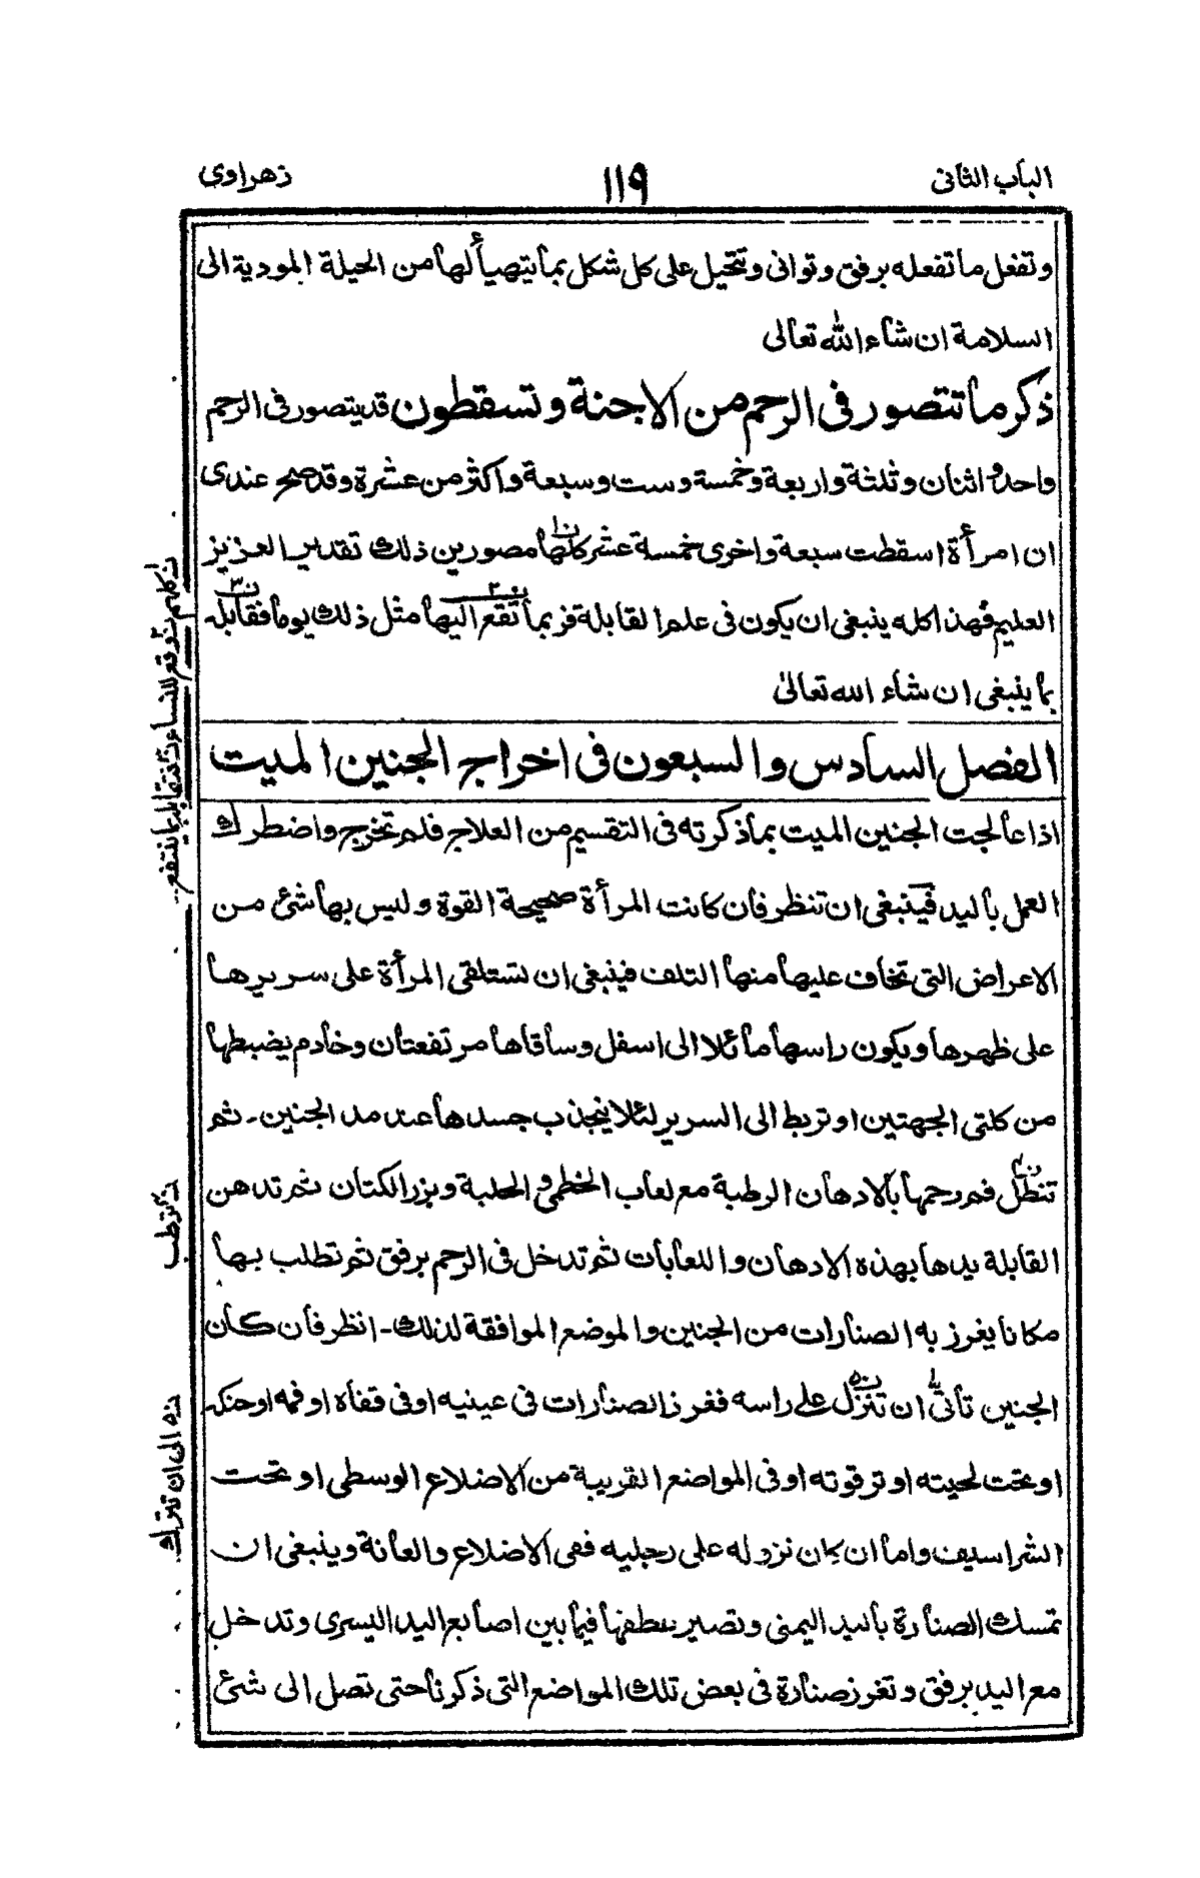 الباب الثانى
١١٩
زهراوى
وتفعل ما تفعله برفق وتوانى وتتحيل على كل شكل بما يتهيأ لها من الحيلة المودية الى
السلامة ان شاء الله تعالى
ذكر ما تتصور فى الرحم من الاجنة وتسقطون قد يتصور فى الرحم
واحد و اثنان وثلثة واربعة وخمسة وست وسبعة واكثر من عشرة وقد صح عندى
ان امرأة اسقطت سبعة واخرى خمسة عشر كلها مصورين ذلك تقدير العزيز
العليم فهذا كله ينبغى ان يكون فى علم القابلة فربما تقع اليها مثل ذلك يوما فقابله
بما ينبغى ان شاء الله تعالىٰ
الفصل السادس والسبعون فى اخراج الجنين الميت
اذا عالجت الجنين الميت بما ذكرته فى التقسيم من العلاج فلم تخرج واضطرك
العمل باليد فينبغى ان تنظر فان كانت المرأة صحيحة القوة وليس بها شئ من
الاعراض التى تخاف عليها منها التلف فينبغى ان تستلقى المرأة على سريرها
على ظهرها ويكون راسها مائلا الى اسفل وساقاها مرتفعتان وخادم يضبطها
من كلتى الجهتين او تربط الى السرير لئلا ينجذب جسدها عند مد الجنين۔ ثم
تنطل فم رحمها بالادهان الرطبة مع لعاب الخطمى و الحلبة وبزر الكتان ثم تدهن
القابلة يدها بهذه الادهان واللعابات ثم تدخل فى الرحم برفق ثم تطلب بها
مكانا يغرز به الصنارات من الجنين والموضع الموافقة لذلك۔ انظر فان كان
الجنين تأتى ان تنزل على راسه فغرز الصنارات فى عينيه او فى قفاه او فمه او حنكه
او تحت لحيته او ترقوته او فى المواضع القريبة من الاضلاع الوسطى او تحت
الشراسيف واما ان كان نزوله على رجليه ففى الاضلاع والعانة وينبغى ان
تمسك الصنارة باليد اليمنى وتصير عطفها فيما بين اصابع اليد اليسرى وتدخل
مع اليد برفق وتغرز صنارة فى بعض تلك المواضع التى ذكرنا حتى تصل الى شئ
ن كلهم
ن٤ ترطب
ن٥ الى ان تترك